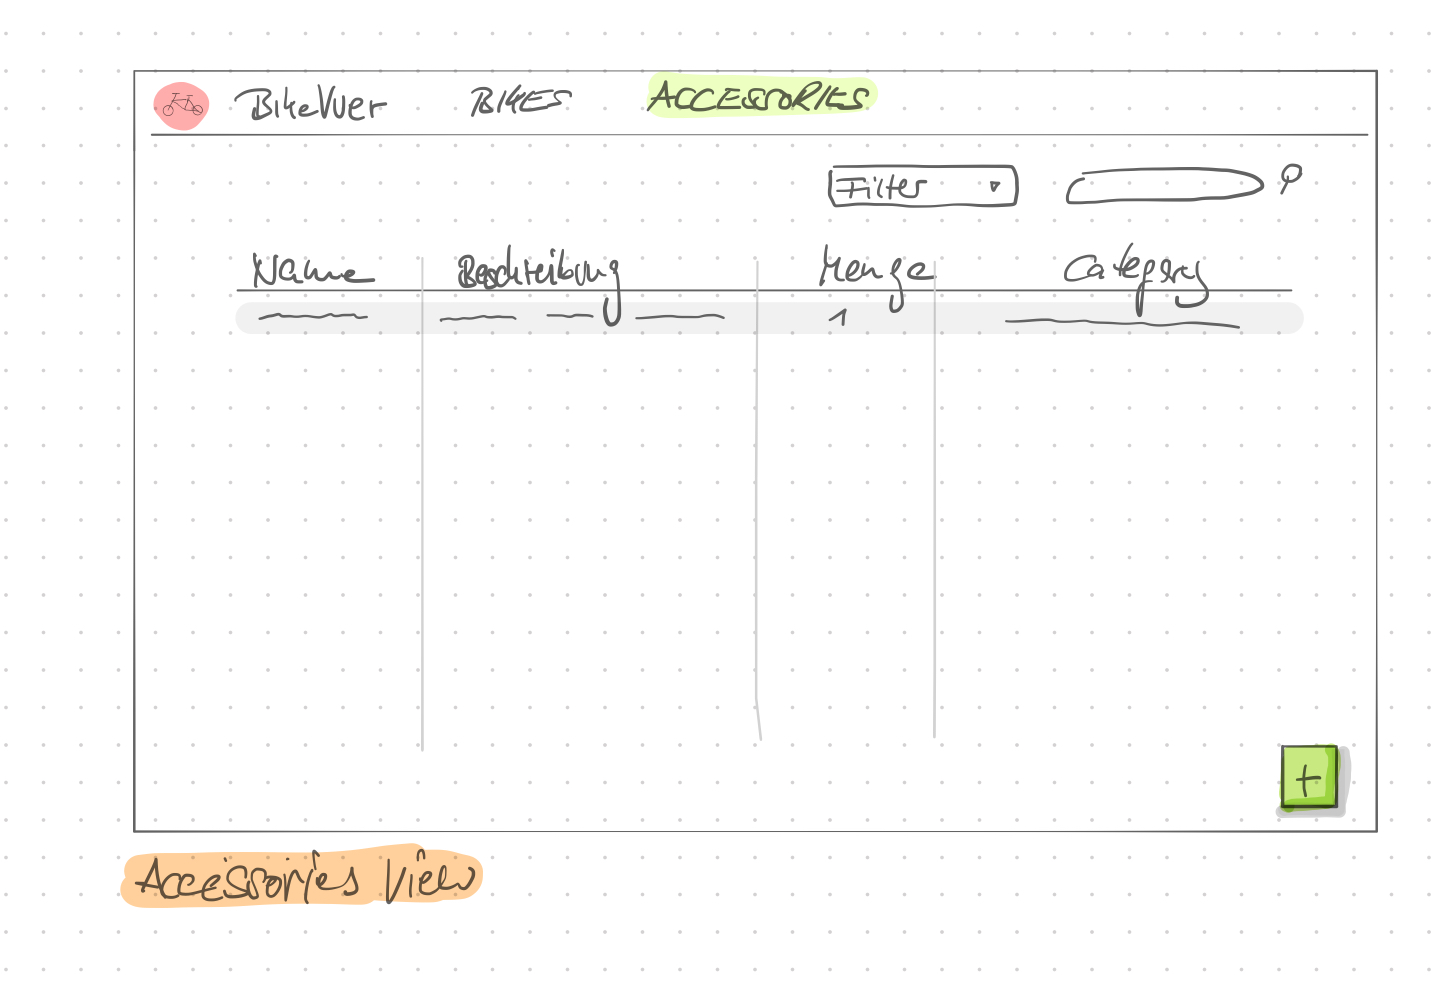 BikeVuer BIKES ACCESSORIES
Filter
Name Beschreibung Menge Category
1
+
Accessories View